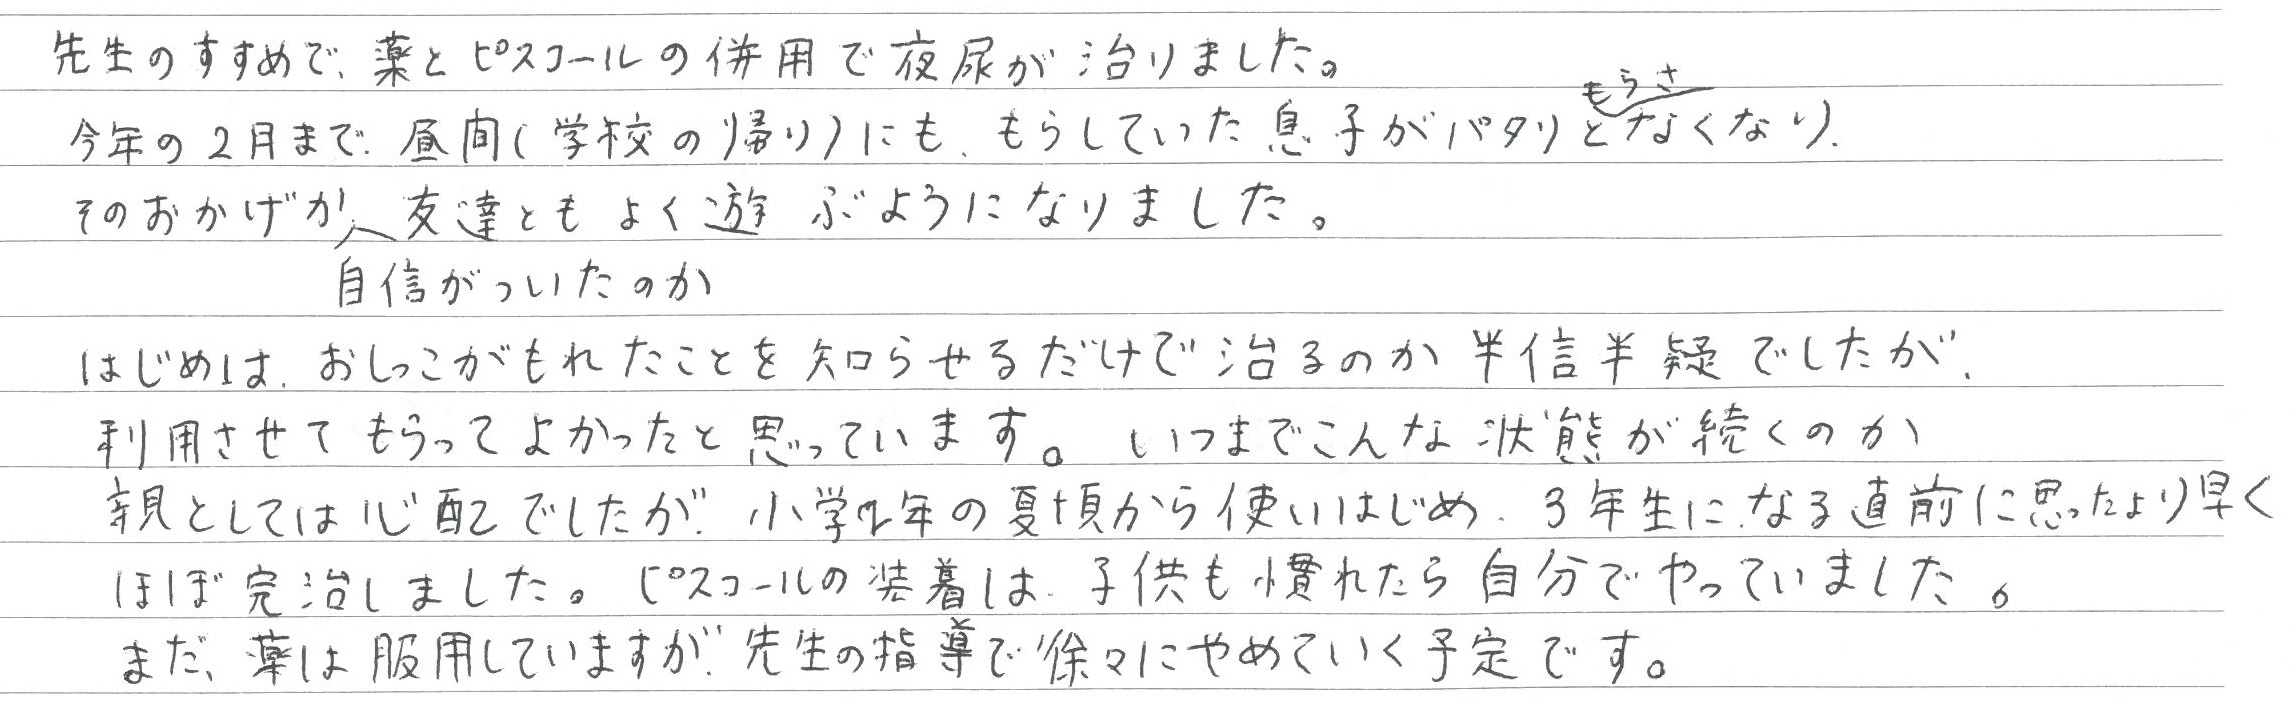 先生のすすめで、薬とピスコールの併用で夜尿が治りました。
今年の2月まで、昼間(学校の帰り)にも、もらしていた息子がパタリともらさなくなり、
そのおかげか自信がついたのか友達ともよく遊ぶようになりました。
はじめは、おしっこがもれたことを知らせるだけで治るのか半信半疑でしたが、
利用させてもらってよかったと思っています。いつまでこんな状態が続くのか
親としては心配でしたが、小学2年の夏頃から使いはじめ、3年生になる直前に思ったより早く
ほぼ完治しました。ピスコールの装着は、子供も慣れたら自分でやっていました。
まだ、薬は服用していますが、先生の指導で徐々にやめていく予定です。